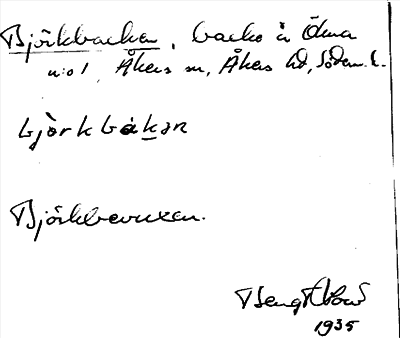 Björkbacken, backe å Ökna
n:o 1, Åkers sn, Åkers hd, Södem. l.
bjòrkbákan
Björkbackan.
Bengt
1935